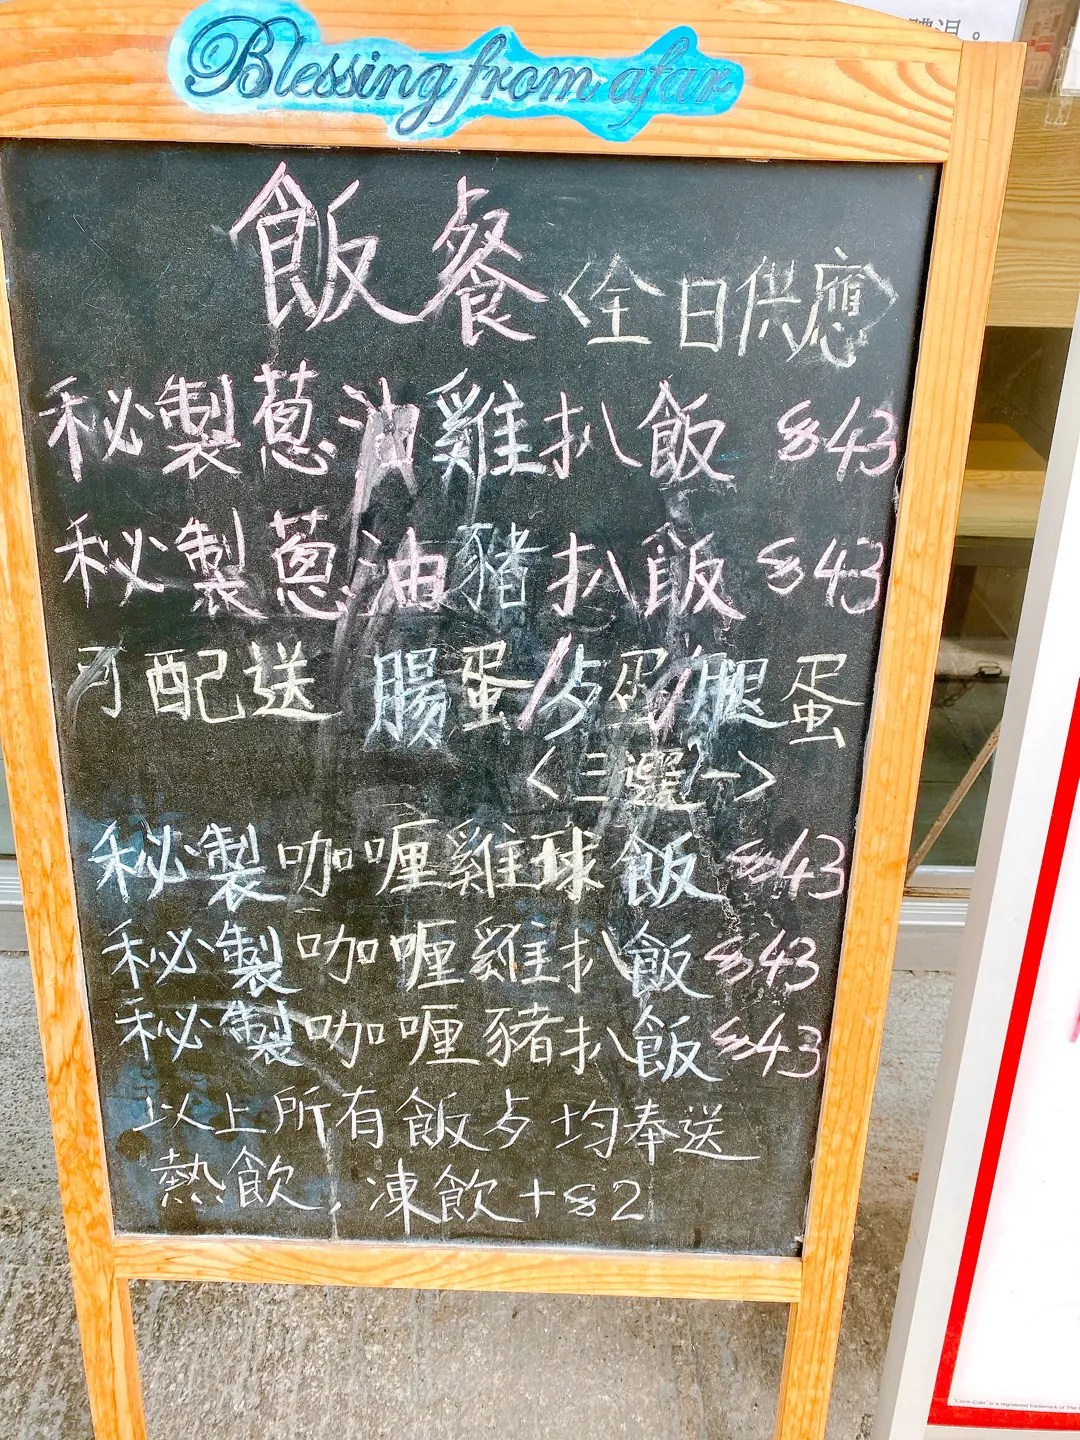 體温。
Blessing from afar
飯餐〈全日供應〉
秘製蔥油雞扒飯 $43
秘製蔥油豬扒飯 $43
可配送 腸蛋/歺蛋/腿蛋
〈三選一〉
秘製咖喱雞球飯 $43
秘製咖喱雞扒飯 $43
秘製咖喱豬扒飯 $43
以上所有飯歺均奉送
熱飲,凍飲+$2
"Coca-Cola" is a registered trademark of The